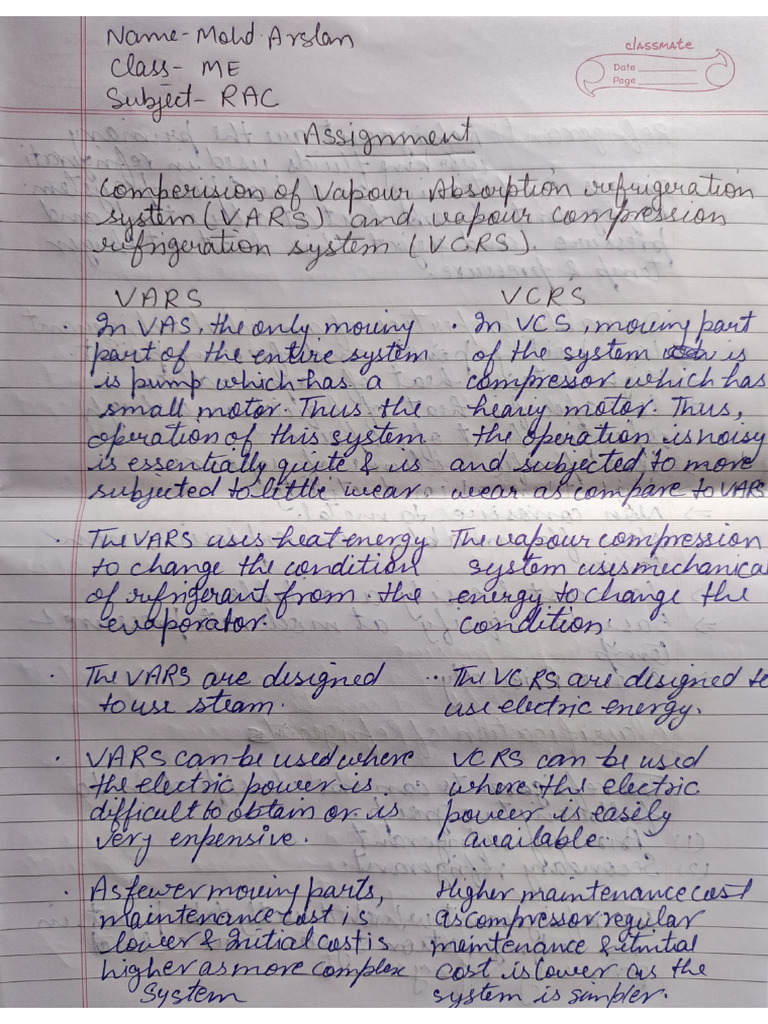 Name- Mohd. Arslan
Class- ME
Subject- RAC
classmate
Date
Page
Assignment
Comperision of Vapour Absorption refrigeration
system (VARS) and vapour compression
refrigeration system (VCRS).
VARS
· In VAS, the only moving
part of the entire system
is pump which has a
small motor. Thus the
operation of this system
is essentially quite & is
subjected to little wear
· The VARS uses heat energy
to change the condition
of refrigerant from the
evaporator.
· The VARS are designed
to use steam.
· VARS can be used where
the electric power is
difficult to obtain or is
very enpensive.
· As fewer moving parts,
maintenance cost is
lower & Initial cost is
higher as more complex
system
VCRS
· In VCS, moving part
of the system is
compressor which has
heavy motor. Thus,
the operation is noisy
and subjected to more
wear as compare to VARS
The vapour compression
system uses mechanica
energy to change the
condition.
·· The VCRS are designed to
use electric energy.
VCRS can be used
where the electric
power is easily
available.
Higher maintenance cost
as compressor regular
maintenance & initial
cost is lower as the
system is simpler.